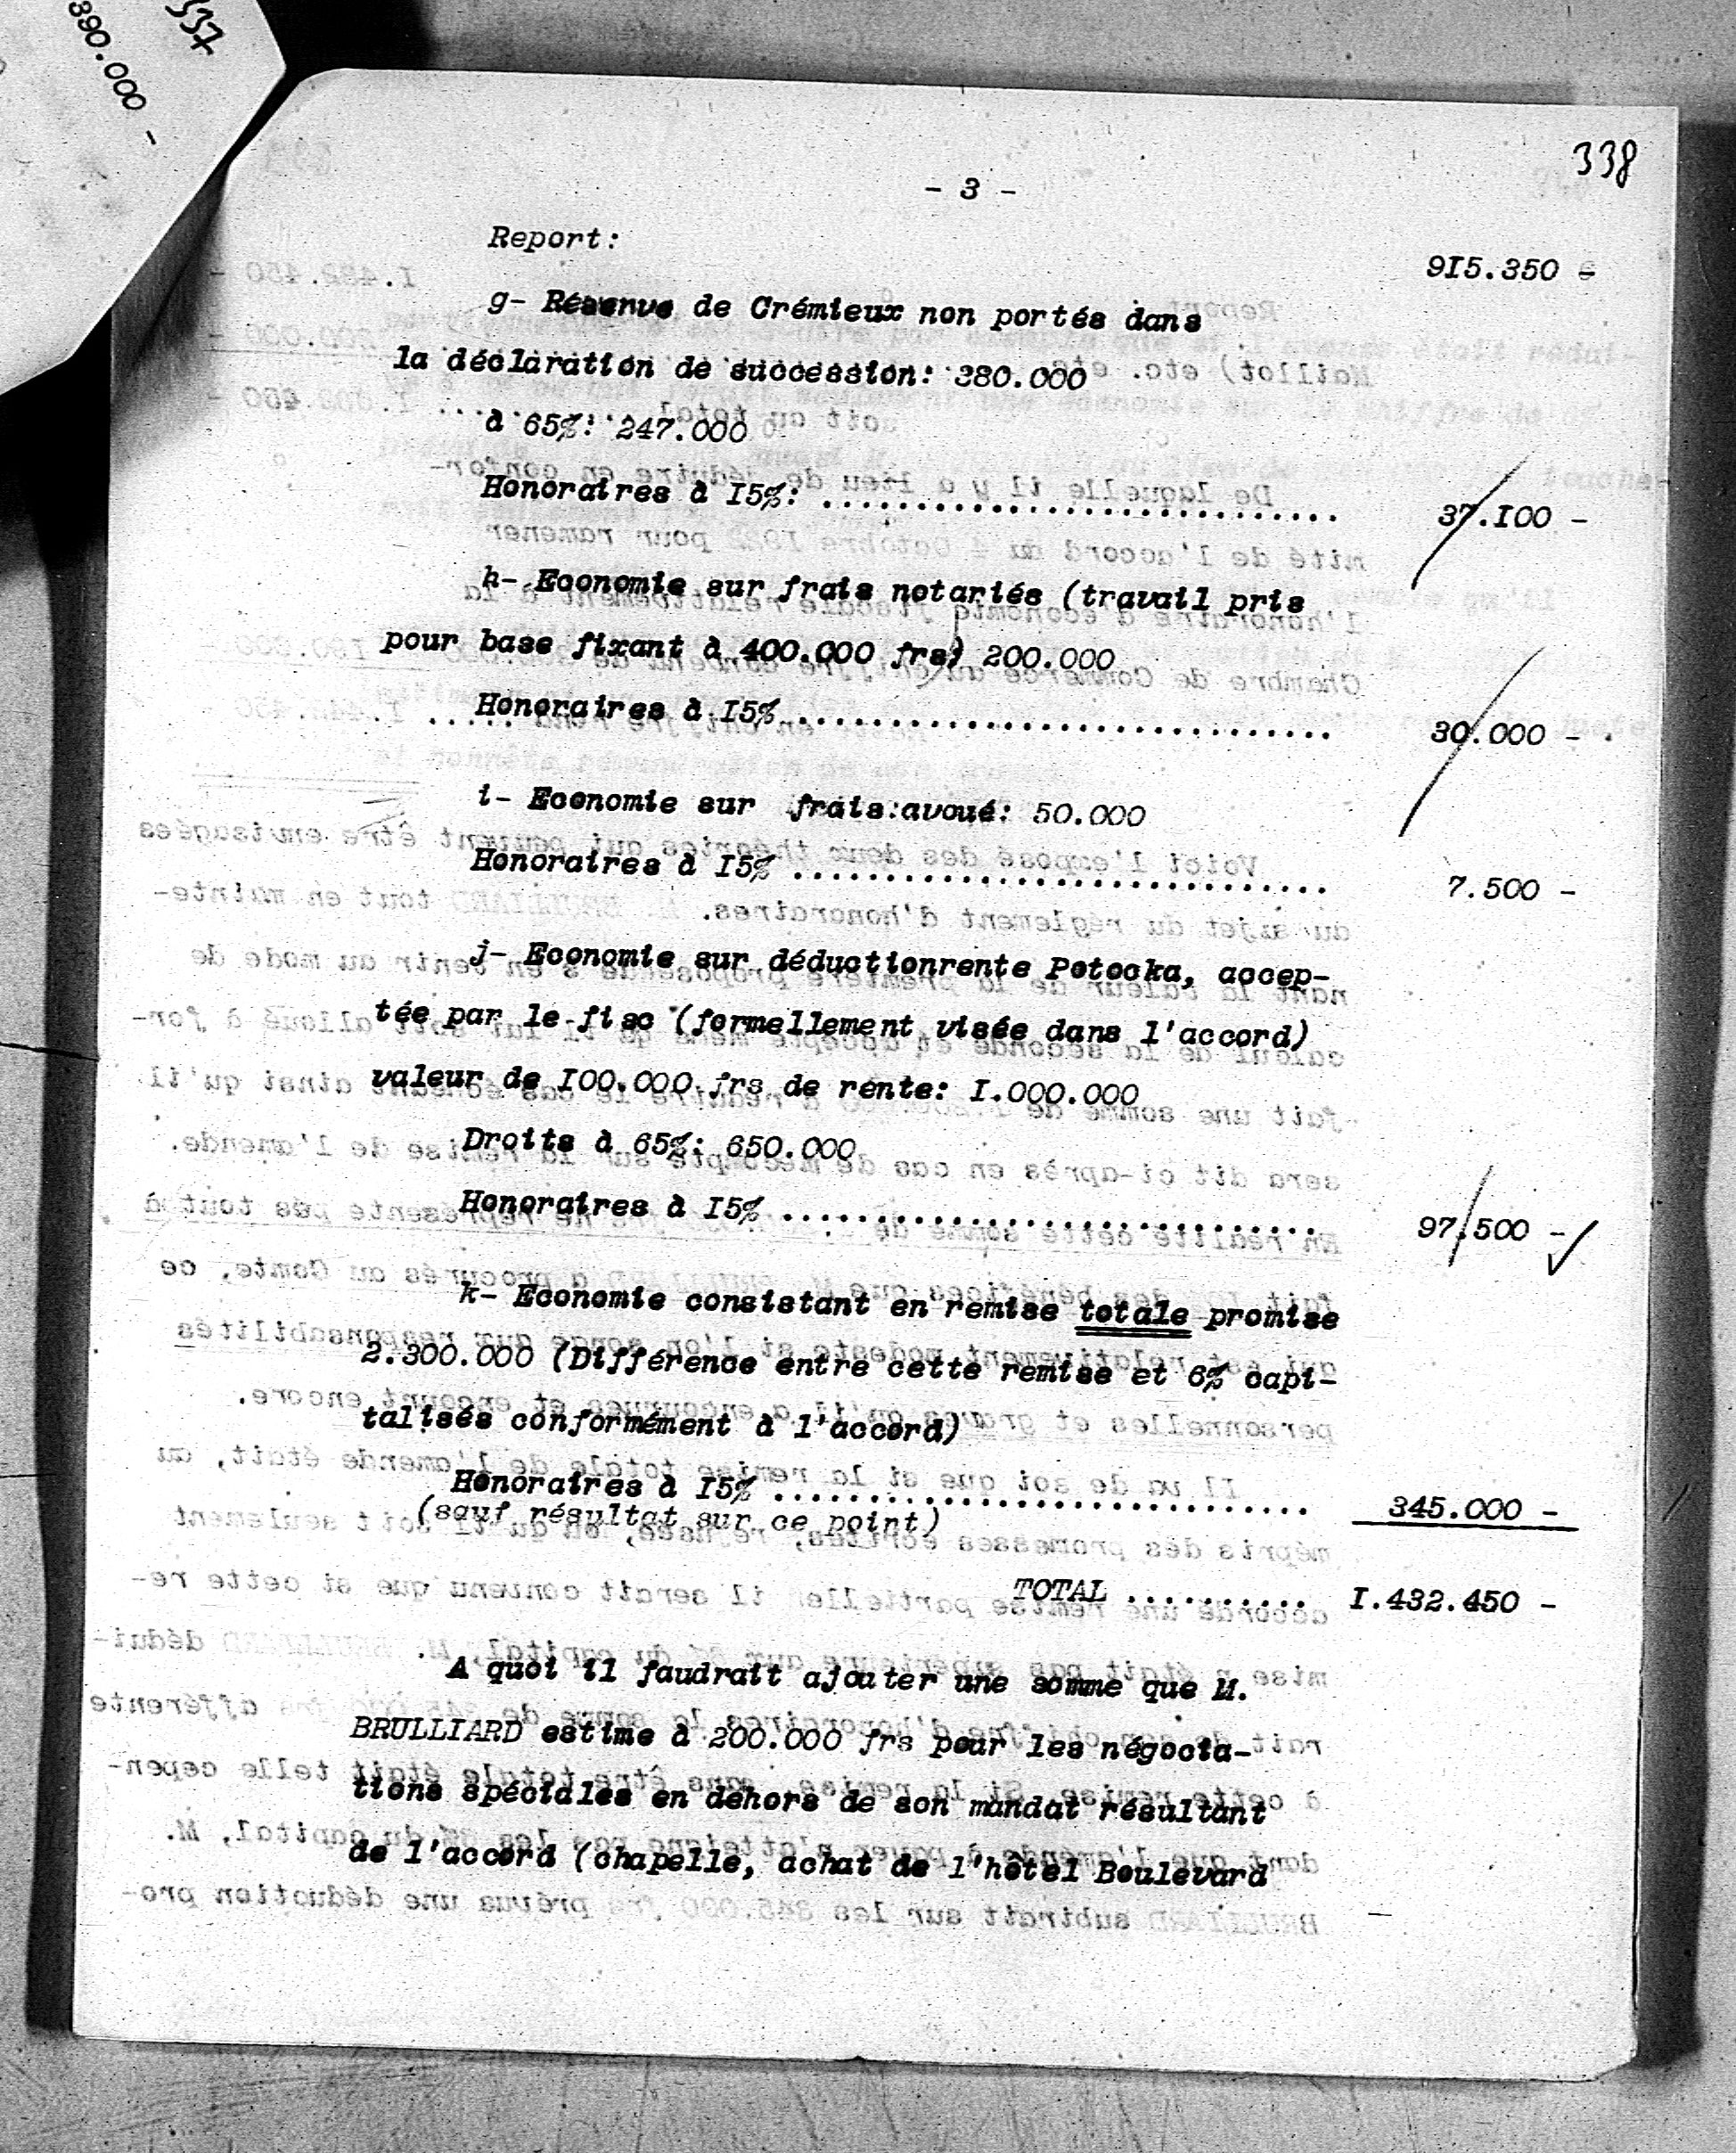 337
390.000 -
338
- 3 -
Report:
915.350 -
g- Réserve de Crémieux non portés dans
la déclaration de succession: 380.000
à 65%: 247.000
Honoraires à I5%: ............................ 37.I00 -
h- Economie sur frais notariés (travail pris
pour base fixant à 400.000 frs) 200.000
Honoraires à I5%............................. 30.000 -
i- Economie sur frais avoué: 50.000
Honoraires à I5% ............................. 7.500 -
j- Economie sur déductionrente Potocka, accep-
tée par le fisc (formellement visée dans l'accord)
valeur de I00.000 frs de rente: I.000.000
Droits à 65%: 650.000
Honoraires à I5% ............................. 97.500 -
k- Economie consistant en remise totale promise
2.300.000 (Différence entre cette remise et 6% capi-
talisés conformément à l'accord)
Honoraires à I5% ............................. 345.000 -
(sauf résultat sur ce point)
TOTAL .......... I.432.450 -
A quoi il faudrait ajouter une somme que M.
BRULLIARD estime à 200.000 frs pour les négocia-
tions spéciales en dehors de son mandat résultant
de l'accord (chapelle, achat de l'hôtel Boulevard